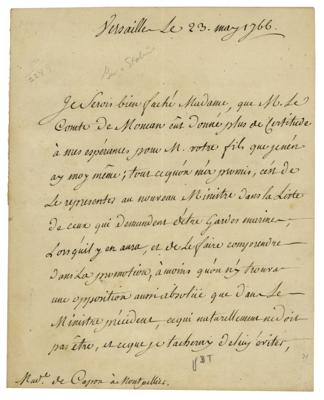 Versaille Le 23. may 1766.
Je serois bien faché Madame, que M. Le
Comte de Moncan eût donné plus de Certitude
à mes espérance pour M. votre fils que je n'en
ay moy même; tout ce qu'on m'a promis, c'est de
Le representer au nouveau Ministre dans la Liste
de ceux qui demandent detre Gardes marine,
Lorsqu'il y en aura, et de Le faire comprendre
dans La promotion, à moins qu'on n'y trouva
une opposition aussi absolüe que dans Le
Ministre précédent, ce qui naturellement ne doit
pas être, et ce que je tacherai de éviter,
Mad. de à Montpellier.